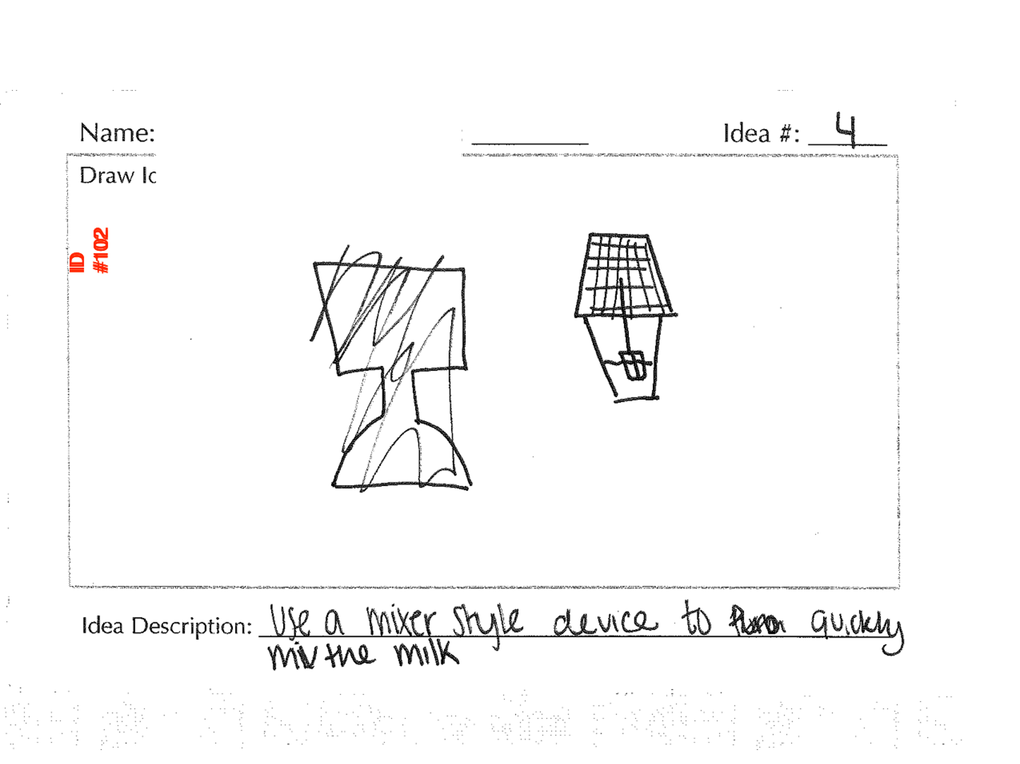 Name:
Idea #: 4
Draw Id
ID
#102
Idea Description: Use a mixer style device to quickly
mix the milk